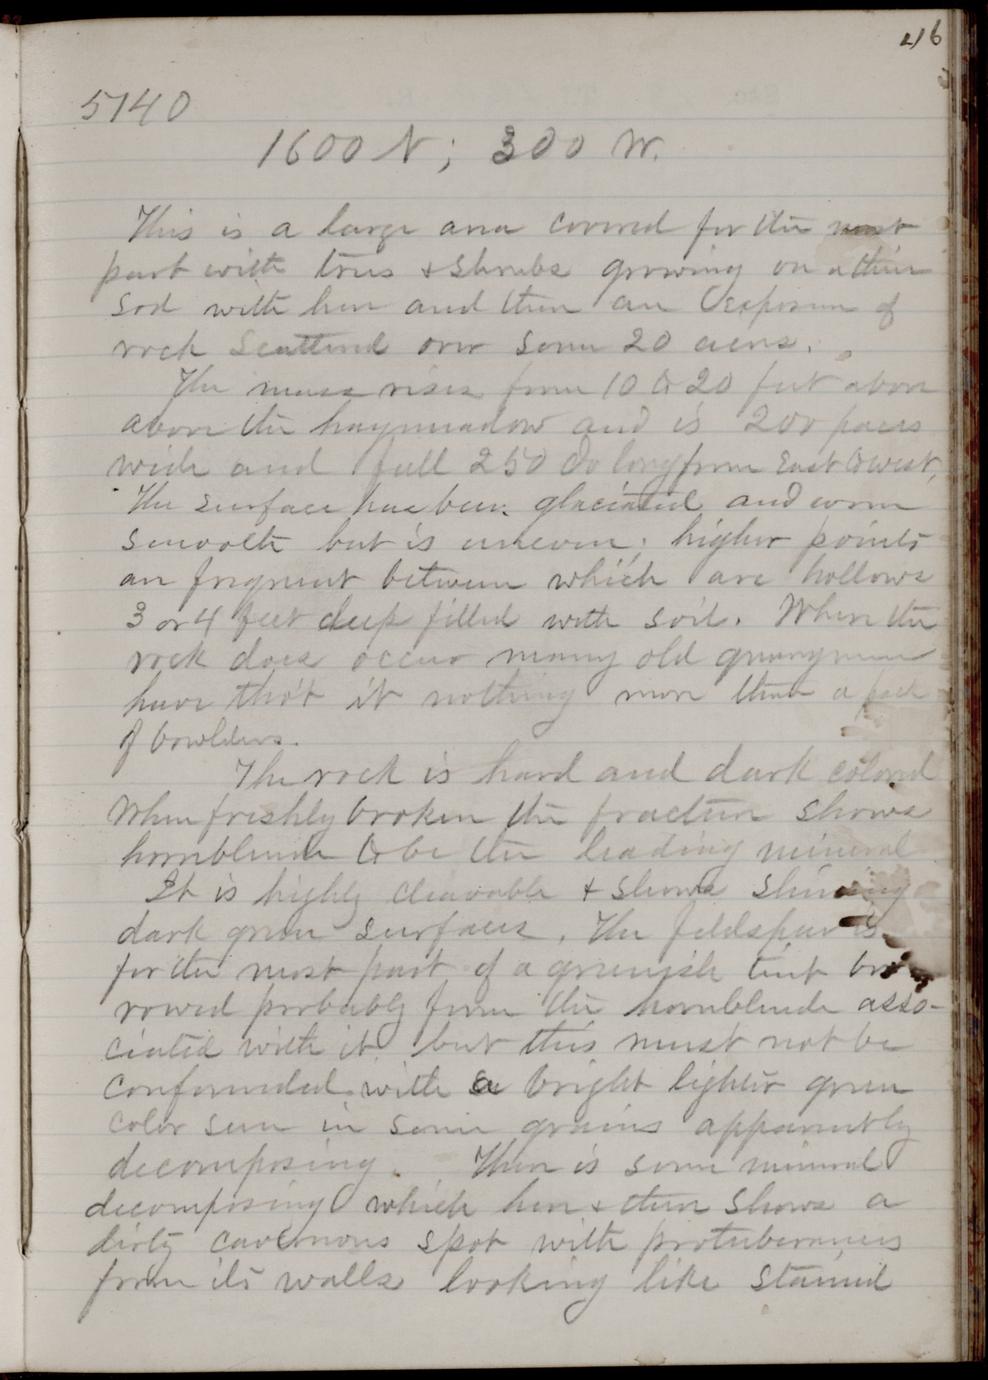 46
5140
1600 N; 300 W.
This is a large area covered for the most
part with trees & shrubs growing on a thin
sod with here and there an exposure of
rock Scattered over some 20 acres.
The mass rises from 10 to 20 feet above
above the haymeadow and is 200 paces
wide and full 250 do long from East to west,
The surface has been glaciated and worn
smooth but is uneven; higher points
are frequent between which are hollows
3 or 4 feet deep filled with soil. Where the
rock does occur many old quarrymen
have tho't it nothing more than a pack
of bowlders.
The rock is hard and dark colored
When freshly broken the fracture shows
hornblende to be the leading mineral
It is highly cleavable & shows shining
dark green surfaces. The feldspar is
for the most part of a greenish tint bor-
rowed probably from the hornblende asso-
ciated with it but this must not be
confounded with a bright lighter green
color seen in some grains apparently
decomposing. There is some mineral
decomposing which here & there shows a
dirty cavernous spot with protuberances
from its walls looking like stained